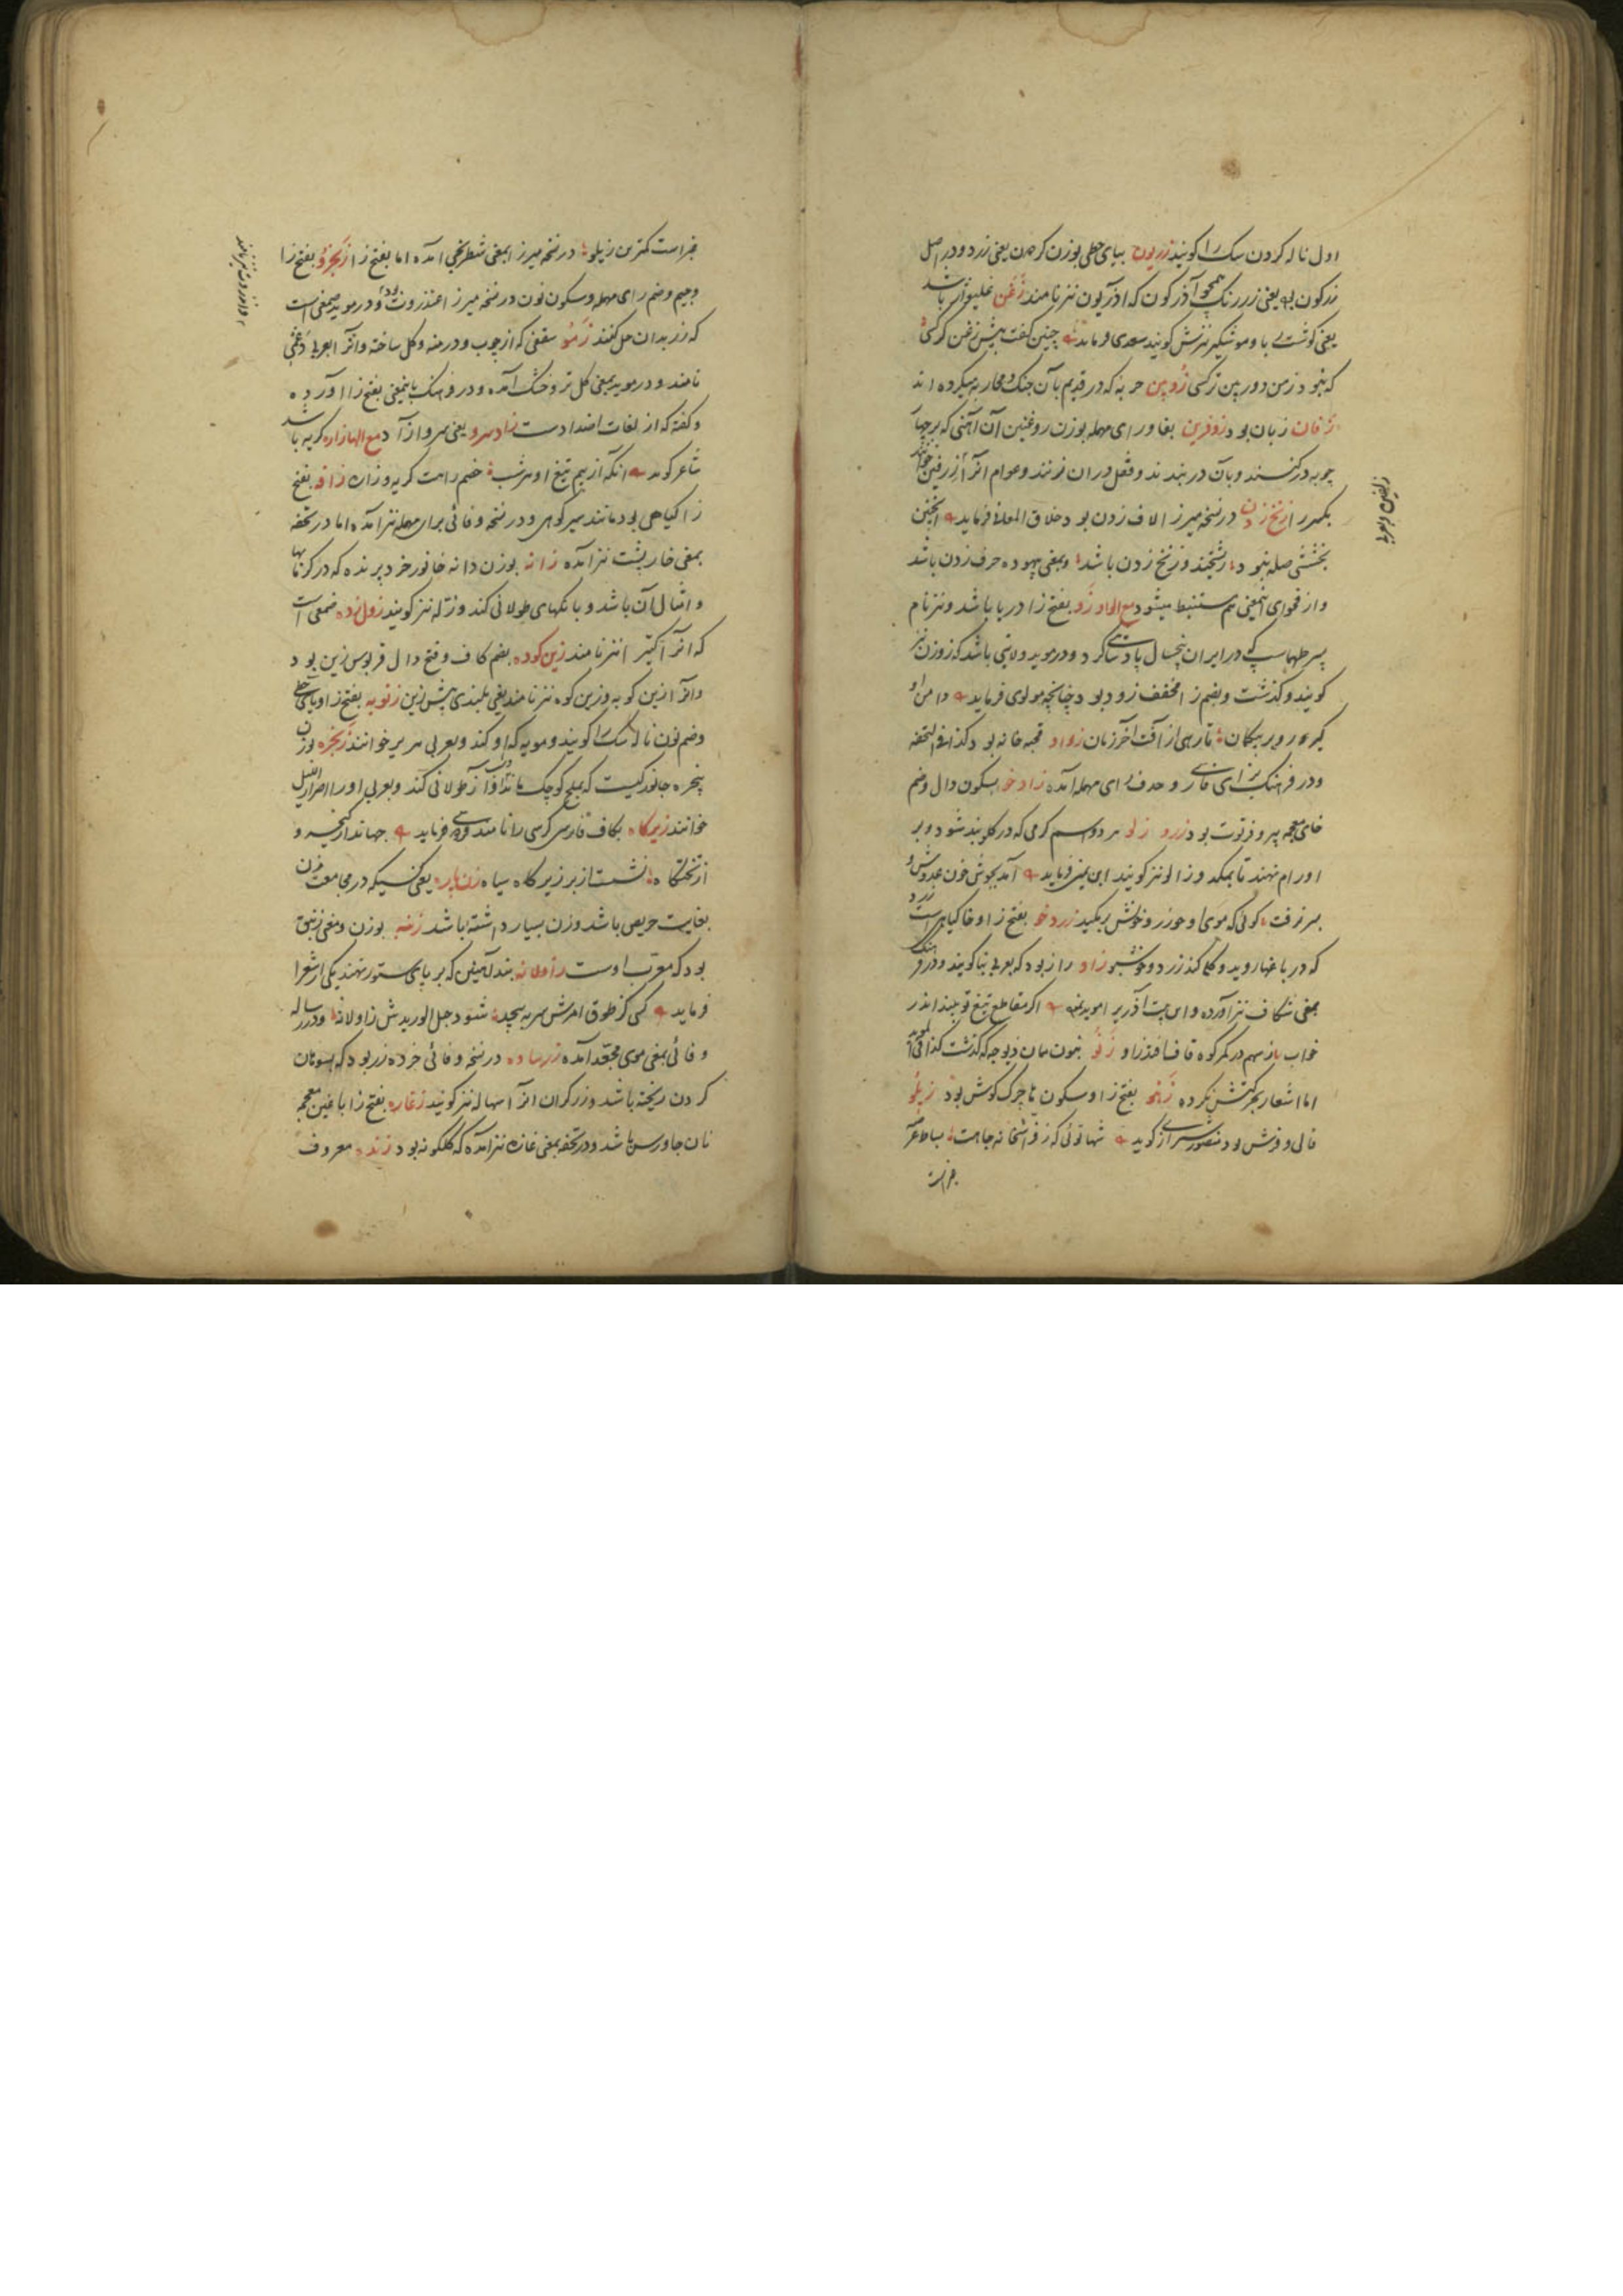 اول ناله کردن سک را کویند زریون بیای حطی بوزن کردن یعنی زرد و در اصل
زرکون بود یعنی زررنک همچو آذرکون که آذریون نیز نامند زغن غلیواژ باشد
یعنی کوشت ربا و موشکیر نیزش کویند سعدی فرماید چنین کفت پیش زغن کرکسی
که نبود ز من دوربین تر کسی زوپین حربه که در قدیم بآن جنک و محاربه میکرده اند
زفان زبان بود زوفرین بفا و رای مهمله بوزن روغنین آن آهنی که بر چهار
چوبه در کنند و بآن در بندند و قفل در آن زنند و عوام آنرا زرفین خوانند
بکسر زا زنخ زدن در نسخه میرزا لاف زدن بود خلاق المعانی فرماید اینچنین
بخششی صله نبود ریشخند و زنخ زدن باشد و بمعنی بیهوده حرف زدن باشد
و از فحوای اینمعنی هم مستنبط میشود مع الواو زو بفتح زا دریا باشد و نیز نام
پسر طهماسپ که در ایران پنجسال پادشاهی کرد و در موید ولایتی باشد که زوزن نیز
کویند و کذشت و بضم زا مخفف زود بود چنانچه مولوی فرماید دامن او
کیر زودتر بیکمان تا رهی از آفت آخر زمان زواد قحبه خانه بود کذا فی التحفه
و در فرهنک بزای فارسی و حذف رای مهمله آمده زادخو بسکون دال و ضم
خای معجمه پیر و فرتوت بود زرو زلو هر دو اسم کرمی که در کلو بند شود و بر
اورام نهند تا بمکد و زالو نیز کویند ابن یمین فرماید آمد بجوش خون عدوش و
بسر برفت کوئی که موی او چو زرو خونش برمکید زردخو بفتح زا و خا کیاهیست زرد
که در باغها روید و کلی کند زرد و خوشبو زاو راز بود که بعربی بنا کویند و در فرهنک
بمعنی شکاف نیز آورده و این بیت آذری را موید نموده اکر مقاطع تیغ تو بیند اندر
خواب ز سهم در کمر کوه قاف افتد زاو زنو بنون همان دیوچه که کذشت کذا فی الموید
اما اشعار بحرکتش نکرده زخو بفتح زا و سکون خا چرک کوش بود زیلو
قالی و فرش بود منصور شیرازی کوید شها توئی که ز فراشخانه جاهت بساط عرش
فراست
زلفین و بعربی
فراست کمترین زیلو در نسخه میرزا بمعنی شطرنجی آمده اما بفتح زا زنجرو بفتح زا
و جیم و ضم رای مهمله و سکون نون در نسخه میرزا عنذروت بود و در موید صمغی است
که زر بدان حل کنند زمو سقفی که از چوب و درمنه و کل ساخته و آنرا بعربی دغمی
نامند و در موید بمعنی کل تر و خشک آمده و در فرهنک باینمعنی بفتح زا آورده
و کفته که از لغات اضداد است زادسرو یعنی سرو آزاد مع الهاء زاره کریه باشد
شاعر کوید آنکه از بیم تیغ او هر شب خصم را هست کریه و زاره زافه بفتح
زا کیاهی بود مانند سیر کوهی و در نسخه وفائی برای مهمله نیز آمده اما در تحفه
بمعنی خارپشت نیز آمده زانه بوزن دانه خانور خرد پرنده که در کرمابها
و امثال آن باشد و بانکهای طولانی کند و زله نیز کویند زولنده صمغی است
که آنرا کتیرا نیز نامند زین کوده بضم کاف و فتح دال قربوس زین بود
و آنرا زین کوبه و زین کوه نیز نامند یعنی بلندی پیش زین زنویه بفتح زا و یای حطی
و ضم نون ناله سک را کویند و مویه که او کند و بعربی هریر خوانند زنجره بوزن
پنجره جانورکیست که بملخ کوچک ماند و آواز طولانی کند و بعربی او را صرار اللیل
خوانند زیرکاه بکاف فارسی کرسی را نامند فردوسی فرماید جهاندار کیخسرو
از تختکاه نشست از بر زیرکاه سیاه زن باره یعنی کسیکه در مجامعت زن
بغایت حریص باشد و زن بسیار داشته باشد زنبه بوزن و معنی زنبق
بود که معرب اوست زاولانه بند آهنین که بر پای ستور نهند یکی از شعرا
فرماید کسی کز طوق امرش سر بپیچد شود حبل الوریدش زاولانه و در رساله
وفائی بمعنی موی مجعد آمده زرساده در نسخه وفائی خرده زر بود که بسوهان
کردن ریخته باشد و زرکران آنرا سهاله نیز کویند زغاره بفتح زا با غین معجمه
نان جاورس باشد و در تحفه بمعنی غازه نیز آمده که کلکونه بود زنده معروف